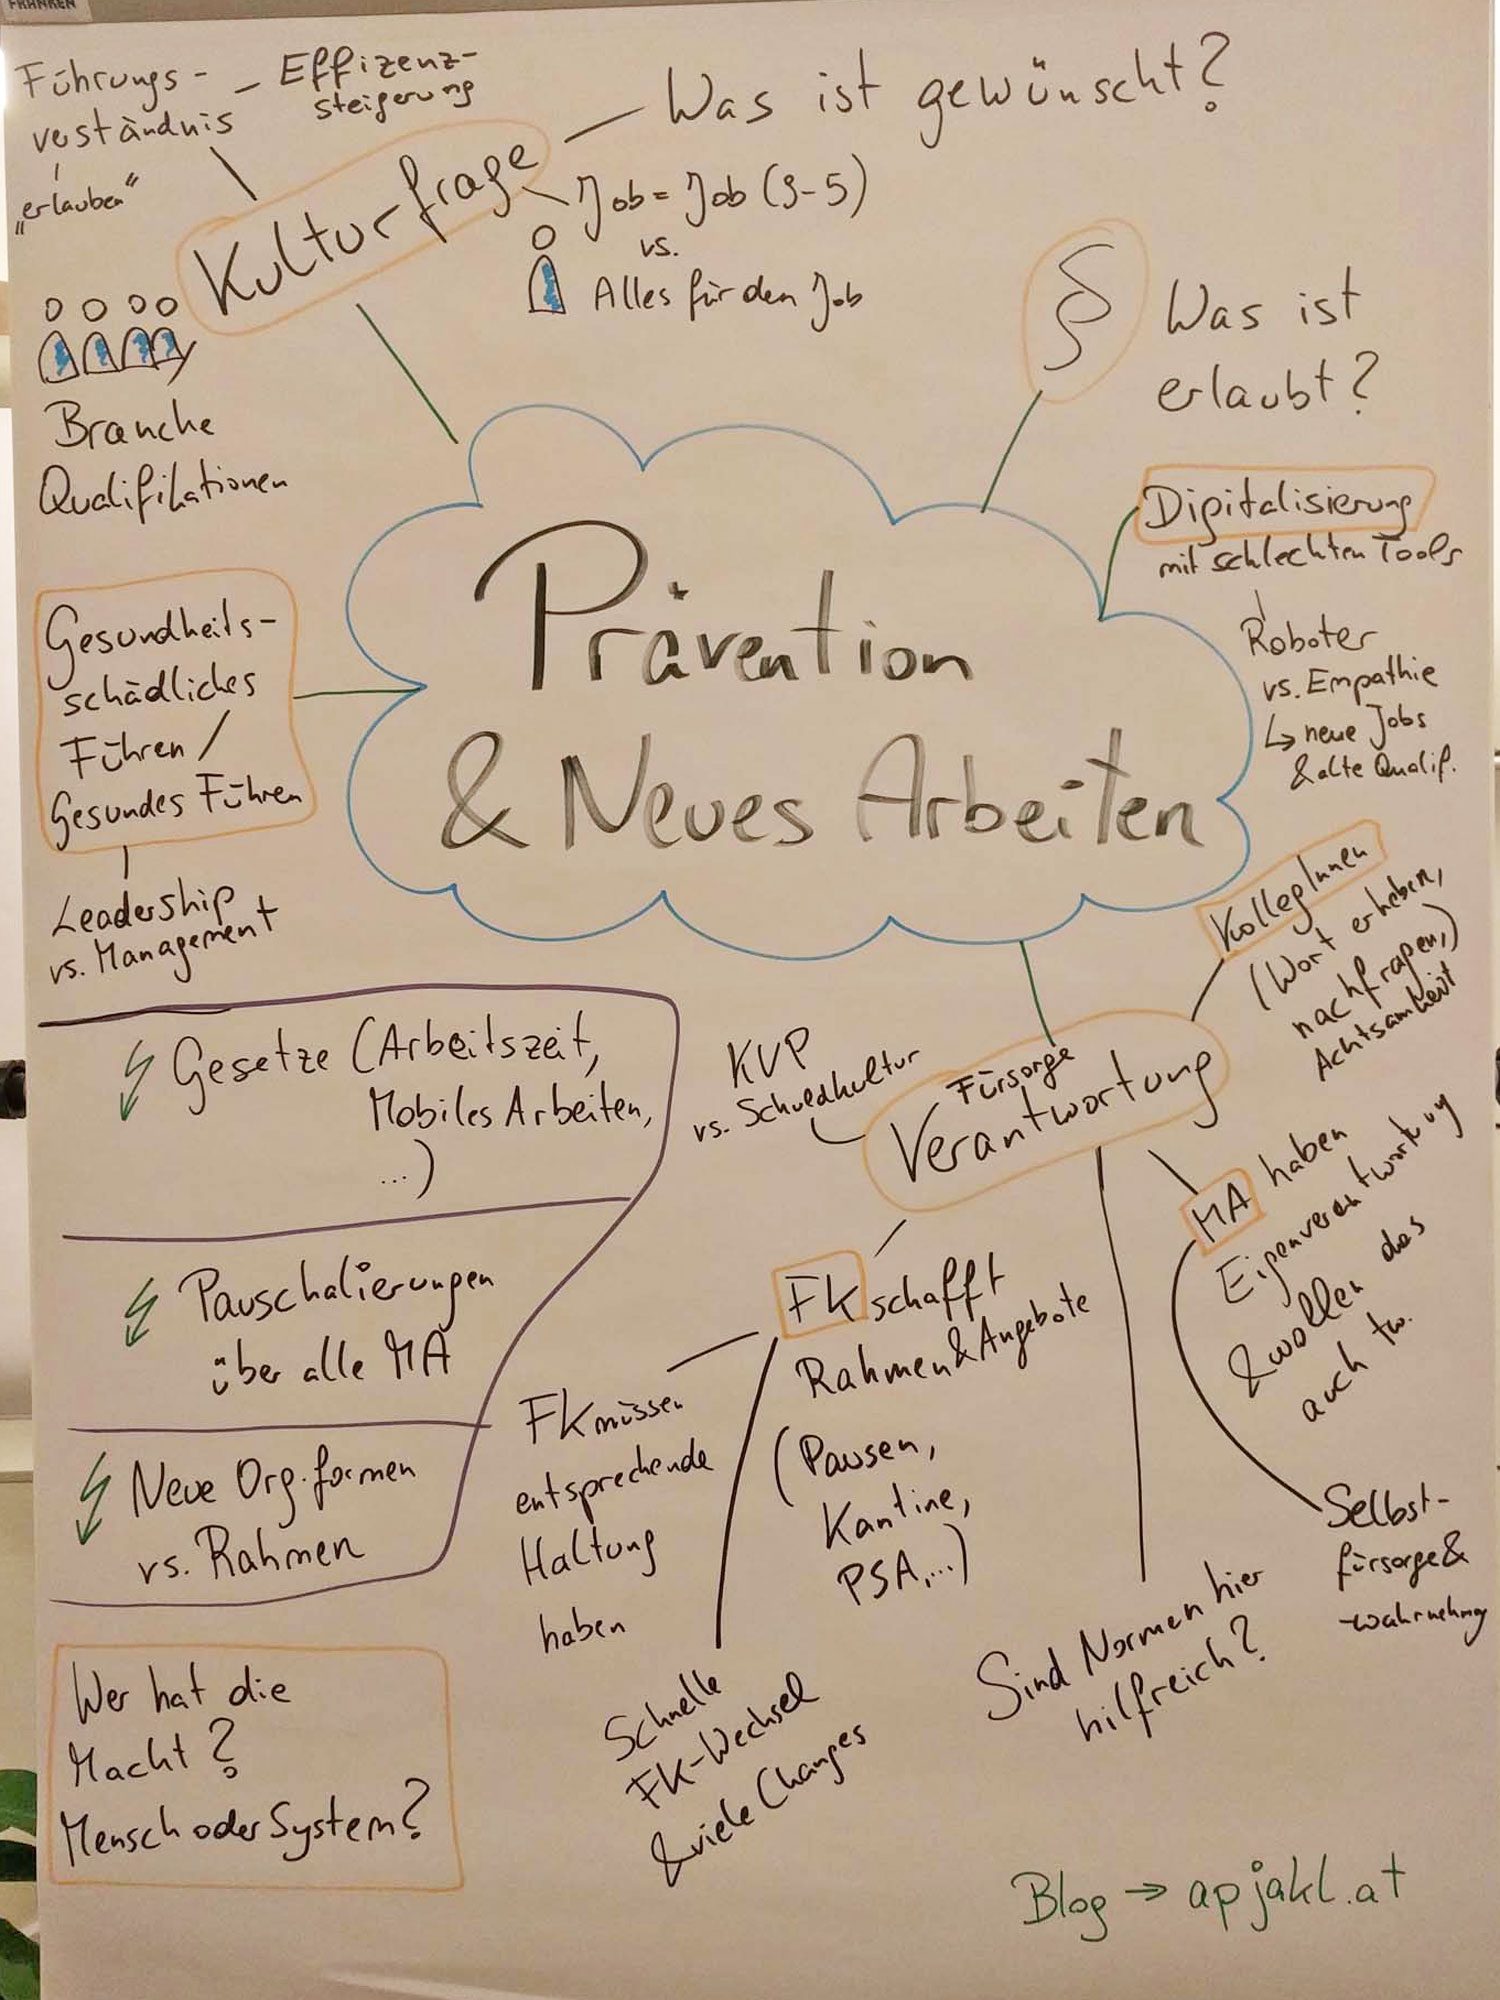 FRANKEN
Führungs-
verständnis
„erlauben"
- Effizenz-
steigerung
Kulturfrage
Was ist gewünscht?
Job = Job (9-5)
vs.
Alles für den Job
Branche
Qualifikationen
§
Was ist
erlaubt?
Digitalisierung
mit schlechten Tools
Roboter
vs. Empathie
↳ neue Jobs
& alte Qualif.
Prävention
& Neues Arbeiten
Gesundheits-
schädliches
Führen /
Gesundes Führen
Leadership
vs. Management
KollegInnen
(Wort erheben,
nachfragen,)
Achtsamkeit
Gesetze (Arbeitszeit,
Mobiles Arbeiten,
...)
Pauschalierungen
über alle MA
Neue Org.formen
vs. Rahmen
KVP
vs. Schuldkultur
Fürsorge
Verantwortung
MA haben
Eigenverantwortung
& wollen das
auch tw.
Selbst-
fürsorge &
-wahrnehmg
FK schafft
Rahmen & Angebote
(Pausen,
Kantine,
PSA,...)
FK müssen
entsprechende
Haltung
haben
Schnelle
FK-Wechsel
& viele Changes
Sind Normen hier
hilfreich?
Wer hat die
Macht?
Mensch oder System?
Blog → apjakl.at